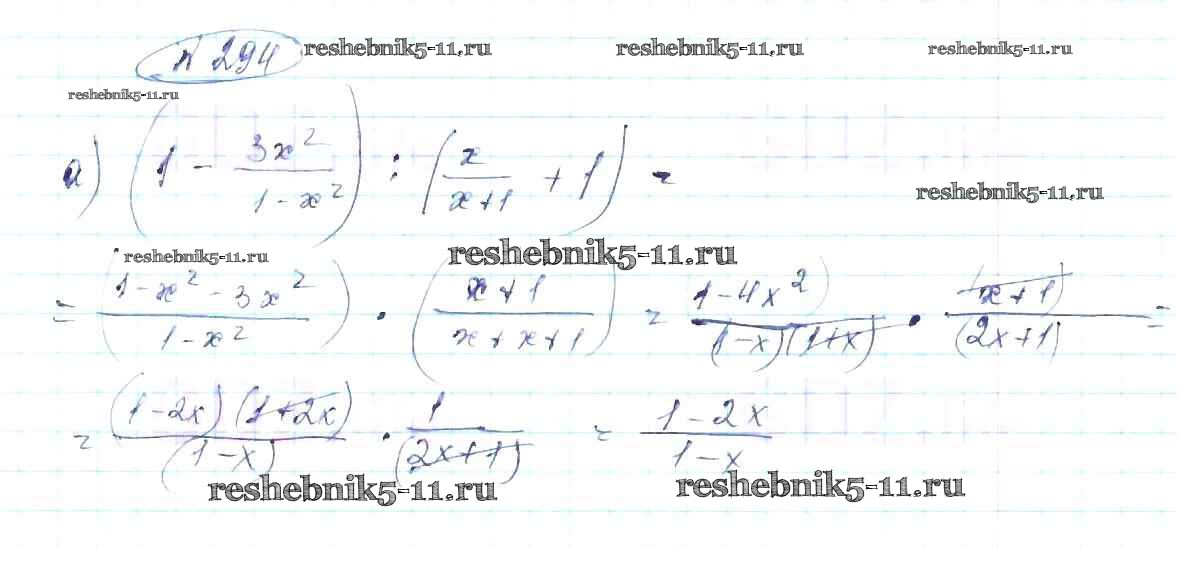 № 294 reshebnik5-11.ru reshebnik5-11.ru reshebnik5-11.ru
reshebnik5-11.ru
а) (1 - 3x²/(1-x²)) : (x/(x+1) + 1) =
reshebnik5-11.ru
reshebnik5-11.ru reshebnik5-11.ru
= ((1-x²-3x²)/(1-x²)) · ((x+1)/(x+x+1)) = (1-4x²)/((1-x)(1+x)) · (x+1)/(2x+1) =
= (1-2x)(1+2x)/(1-x) · 1/(2x+1) = (1-2x)/(1-x)
reshebnik5-11.ru reshebnik5-11.ru